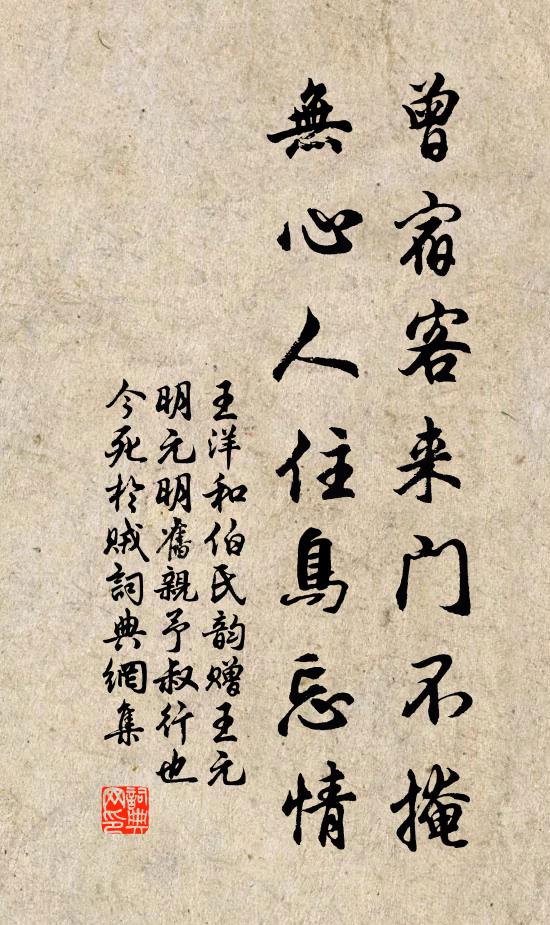 曾宿客来门不掩
無心人住鳥忘情
王洋和伯氏韵赠王元
明元明舊親予叔行也
今死於贼詞典網集
詞典
网印